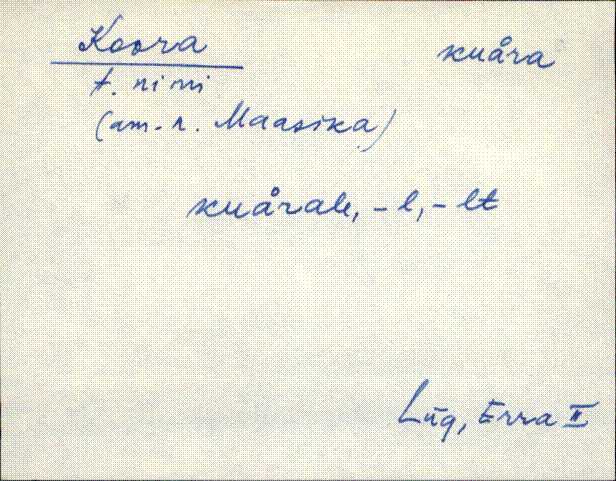 Koora kuåra
t. nimi
(am-r. Maasika)
kuårale, -l, -lt
Lüg, Erra II